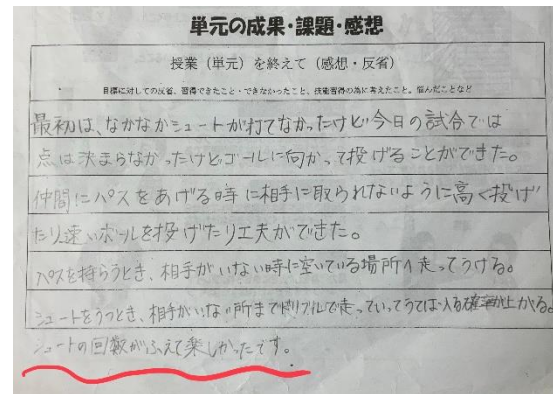 単元の成果・課題・感想
授業（単元）を終えて（感想・反省）
目標に対しての反省、習得できたこと・できなかったこと、技能習得の為に考えたこと。悩んだことなど
最初は、なかなかシュートが打てなかったけど今日の試合では
点は決まらなかったけどゴールに向かって投げることができた。
仲間にパスをあげる時に相手に取られないように高く投げ
たり速いボールを投げたり工夫ができた。
パスを持らうとき、相手がいない時に空いている場所へ走ってうける。
シュートをうつとき、相手がいない所までドリブルで走っていってうてば入る確率が上がる。
シュートの回数がふえて楽しかったです。